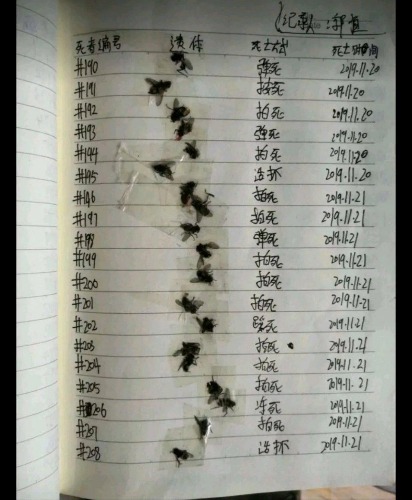 (纪录 :
死者编号 遗体 死亡方式 死亡时间
#190 弹死 2019.11.20
#191 拍死 2019.11.20
#192 拍死 2019.11.20
#193 弹死 2019.11.20
#194 拍死 2019.11.20
#195 活抓 2019.11.20
#196 拍死 2019.11.21
#197 拍死 2019.11.21
#198 弹死 2019.11.21
#199 拍死 2019.11.21
#200 拍死 2019.11.21
#201 拍死 2019.11.21
#202 踩死 2019.11.21
#203 拍死 2019.11.21
#204 拍死 2019.11.21
#205 拍死 2019.11.21
#206 冻死 2019.11.21
#207 拍死 2019.11.21
#208 活抓 2019.11.21